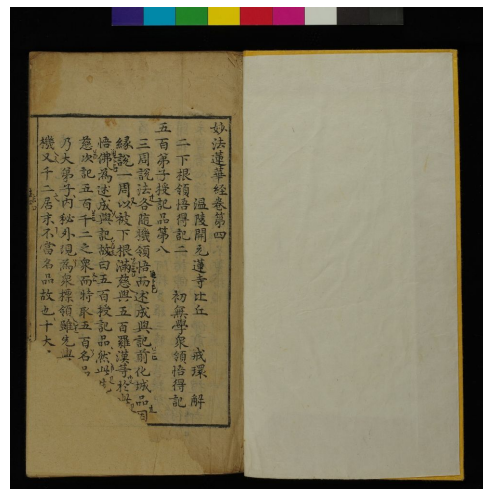 妙法蓮華經卷第四
溫陵開元蓮寺比丘 戒環 解
二下根領悟得記二 初無學衆領悟得記
五百弟子授記品第八
三周說法各隨機領悟而述成與記前化城品因
緣說一周以放下根滿慈與五百羅漢等於此
悟佛爲述成與記故曰五百授記品然此
慈次記五百千二之衆而特取五百名品
乃大弟子內秘外現爲衆標領雖先與
機又千二居末不當名品故也十大